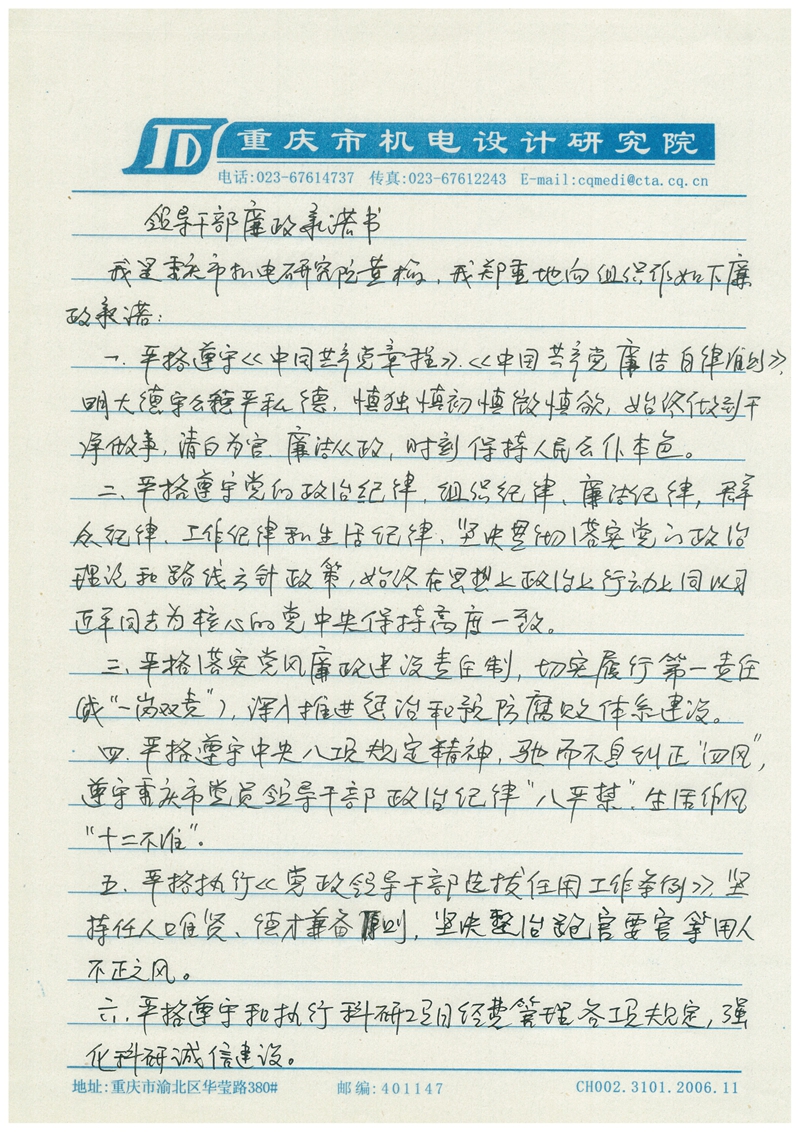 重庆市机电设计研究院
电话:023-67614737 传真:023-67612243 E-mail:cqmedi@cta.cq.cn
领导干部廉政承诺书
我是重庆市机电研究院黄检,我郑重地向组织作如下廉
政承诺:
一、严格遵守《中国共产党章程》、《中国共产党廉洁自律准则》,
明大德守公德严私德,慎独慎初慎微慎欲,始终做到干
净做事,清白为官、廉洁从政,时刻保持人民公仆本色。
二、严格遵守党的政治纪律、组织纪律、廉洁纪律,群
众纪律、工作纪律和生活纪律、坚决贯彻落实党的政治
理论和路线方针政策,始终在思想上政治上行动上同以习
近平同志为核心的党中央保持高度一致。
三、严格落实党风廉政建设责任制,切实履行第一责任
(或“一岗双责”),深入推进惩治和预防腐败体系建设。
四、严格遵守中央八项规定精神,驰而不息纠正“四风”,
遵守重庆市党员领导干部政治纪律“八严禁”、生活作风
“十二不准”。
五、严格执行《党政领导干部选拔任用工作条例》,坚
持任人唯贤、德才兼备原则,坚决整治跑官要官等用人
不正之风。
六、严格遵守和执行科研项目经费管理各项规定,强
化科研诚信建设。
地址:重庆市渝北区华莹路380# 邮编:401147 CH002.3101.2006.11